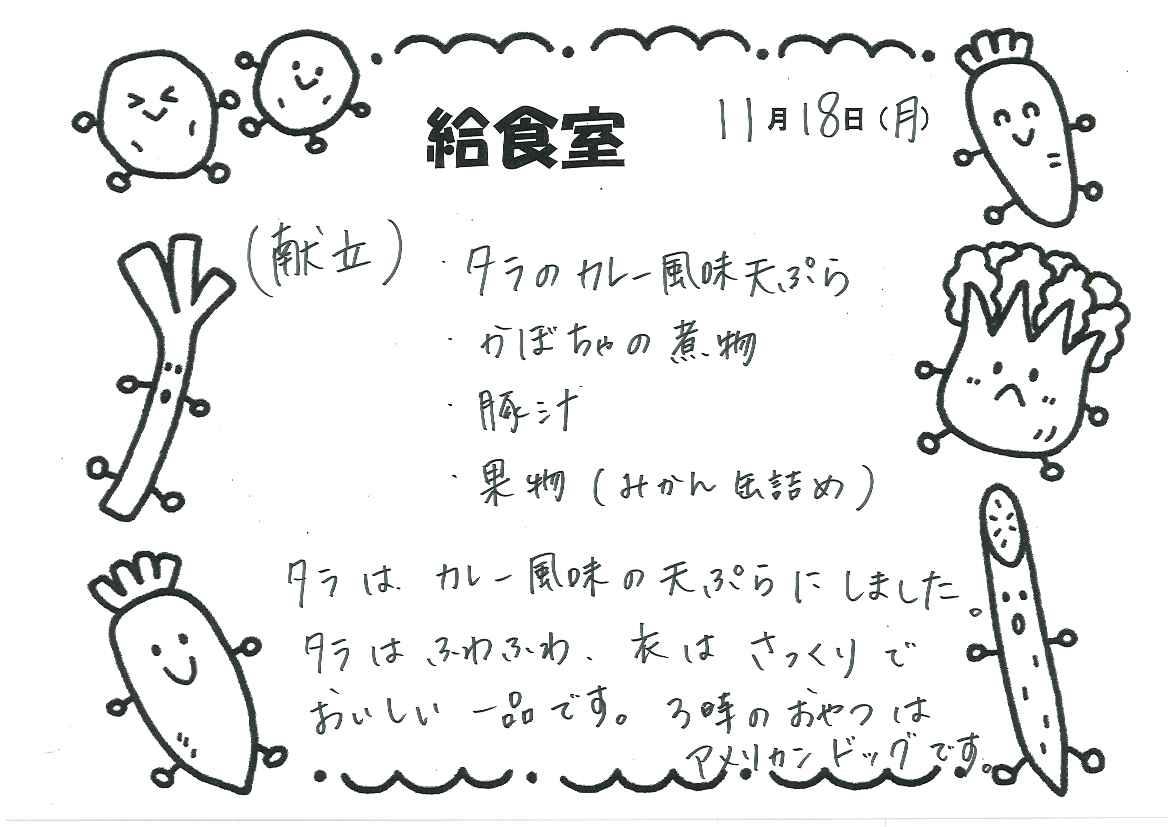 給食室 11月18日(月)
(献立) ・タラのカレー風味天ぷら
・かぼちゃの煮物
・豚汁
・果物(みかん缶詰め)
タラは、カレー風味の天ぷらにしました。
タラはふわふわ、衣はさっくりで
おいしい一品です。3時のおやつは
アメリカンドッグです。